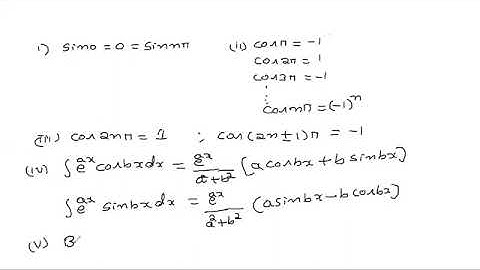 i) sin0 = 0 = sinnπ
(ii) cosπ = -1
cos2π = 1
cos3π = -1
⋮
cosnπ = (-1)^n
(iii) cos2nπ = 1 ; cos(2n±1)π = -1
(iv) ∫e^ax cosbx dx = e^ax/(a²+b²) [a cosbx + b sinbx]
∫e^ax sinbx dx = e^ax/(a²+b²) [a sinbx - b cosbx]
(v) B